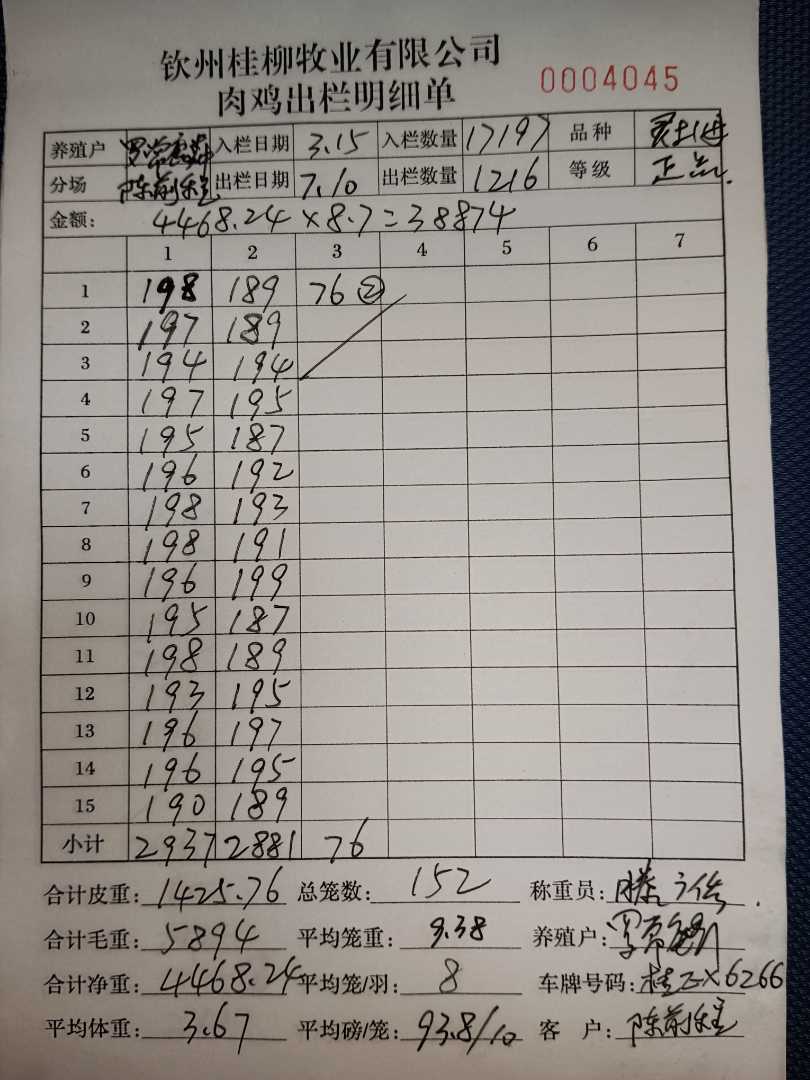 钦州桂柳牧业有限公司
0004045
肉鸡出栏明细单
养殖户 入栏日期 3.15 入栏数量 17197 品种
分场 陈前程 出栏日期 7.10 出栏数量 1216 等级 正品
金额: 4468.24×8.7=38874
1 2 3 4 5 6 7
1 198 189 76②
2 197 189
3 194 194
4 197 195
5 195 187
6 196 192
7 198 193
8 198 191
9 196 199
10 195 187
11 198 189
12 193 195
13 196 197
14 196 195
15 190 189
小计 2937 2881 76
合计皮重: 1425.76 总笼数: 152 称重员:
合计毛重: 5894 平均笼重: 9.38 养殖户:
合计净重: 4468.24 平均笼/羽: 8 车牌号码:
平均体重: 3.67 平均磅/笼: 93.8/10 客 户: 陈前程